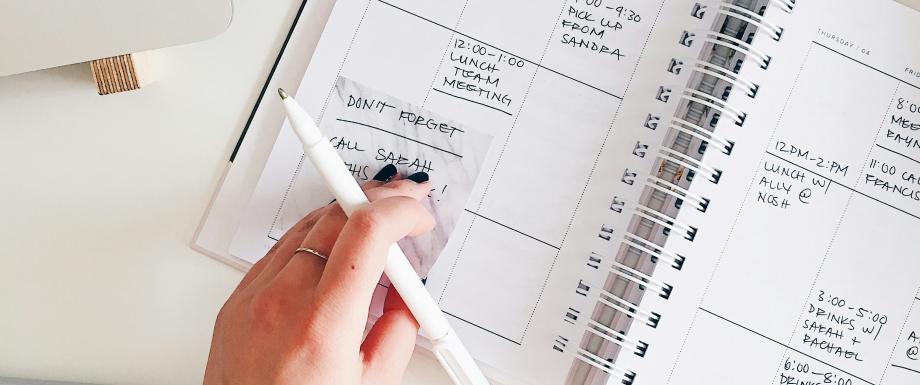 :00-9:30
PICK UP
FROM
SANDRA
12:00-1:00
LUNCH
TEAM
MEETING
DON'T FORGET
CALL SARAH
THIS
!
THURSDAY / 04
12PM-2:PM
LUNCH W/
ALLY @
NOSH
3:00-5:00
DRINKS W/
SARAH +
RACHAEL
6:00-8:00
DRINKS
FRID
8:00
MEE
11:00 CA
FRANCIS
A
@